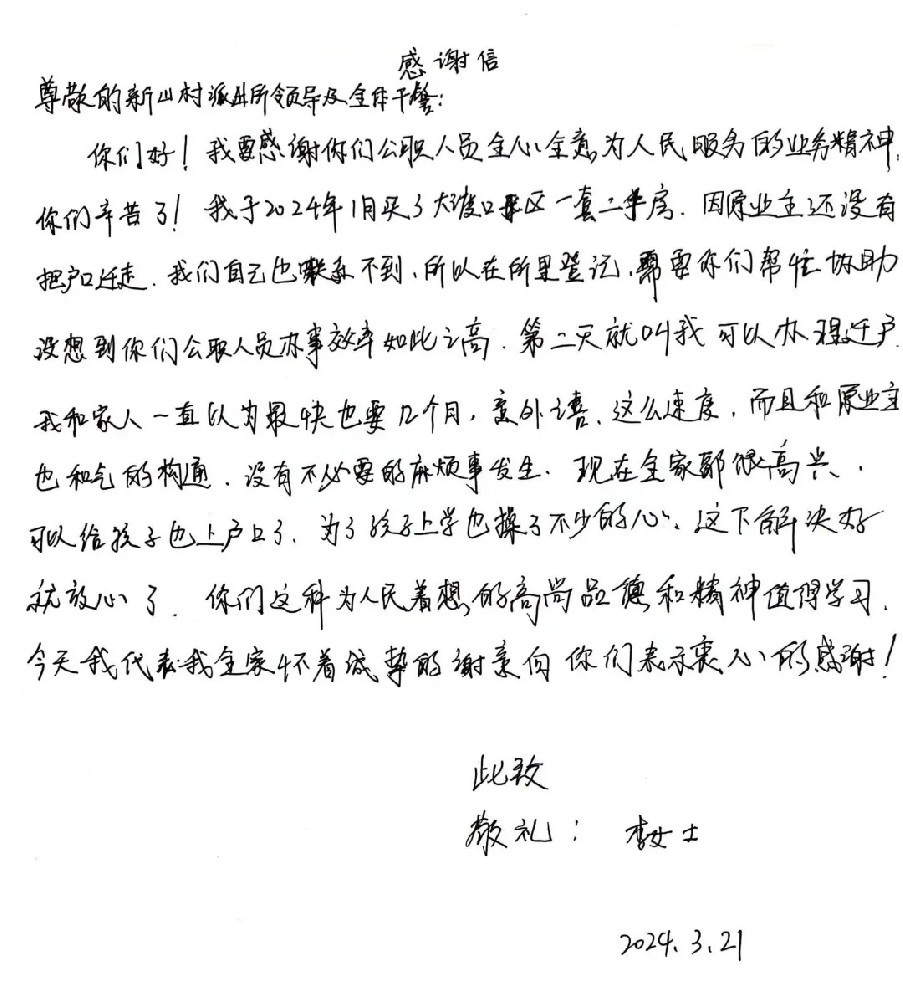 感谢信
尊敬的新山村派出所领导及全体干警:
你们好！我要感谢你们公职人员全心全意为人民服务的业务精神,
你们辛苦了！我于2024年1月买了大渡口区一套二手房.因原业主还没有
把户口迁走.我们自己也联系不到,所以在所里登记,需要你们帮忙协助
没想到你们公职人员办事效率如此之高.第二天就叫我可以办理迁户.
我和家人一直以为最快也要几个月,意外之喜、这么速度,而且和原业主
也和气的构通.没有不必要的麻烦事发生.现在全家都很高兴、
可以给孩子也上户口了、为了孩子上学也操了不少的心、这下解决好
就放心了.你们这种为人民着想的高尚品德和精神值得学习.
今天我代表我全家怀着诚挚的谢意向你们表示衷心的感谢！
此致
敬礼:李女士
2024.3.21